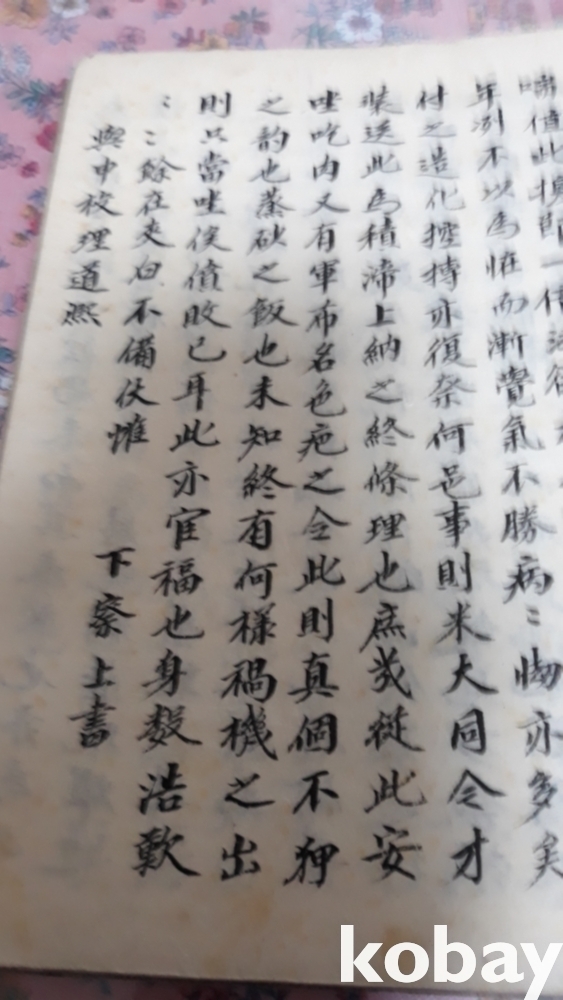 嘯值此換節一倍
年冽不以爲恠而漸覺氣不勝病〻惱亦多矣
付之造化控摶亦復奈何邑事則米大同令才
裝送此爲積滯上納之終條理也庶幾從此安
坐吃肉又有軍布名色疤之令此則真個不狎
之韵也蒸砂之飯也未知終有何樣禍機之出
則只當坐俟債敗已耳此亦官福也身數浩歎
〻〻餘在夾白不備伏惟
下察上書
與申校理道熙
kobay